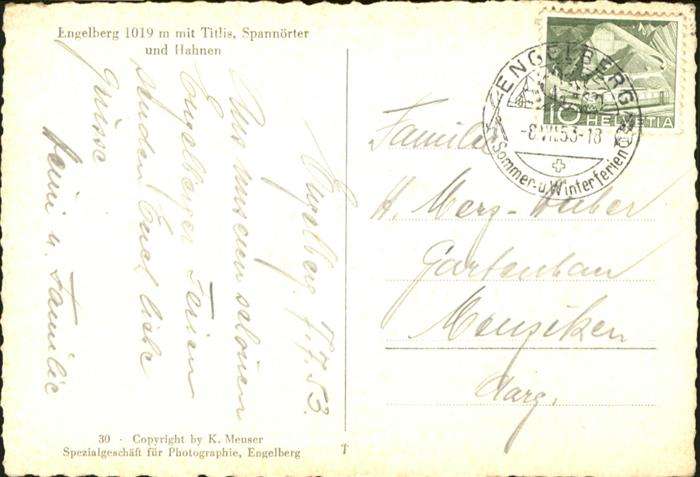 Engelberg 1019 m mit Titlis, Spannörter
und Hahnen
Engelberg 7.7.53.
Aus unseren schönen
Engelberger Ferien
senden Euch liebe
Grüsse
Heini u. Familie
30 - Copyright by K. Meuser
Spezialgeschäft für Photographie, Engelberg
T
ENGELBERG
-8.VII.53-18
Sommer-u.Winterferien
10 HELVETIA
Familie
H. Merz-Huber
Gartenbau
Menziken
Aarg.